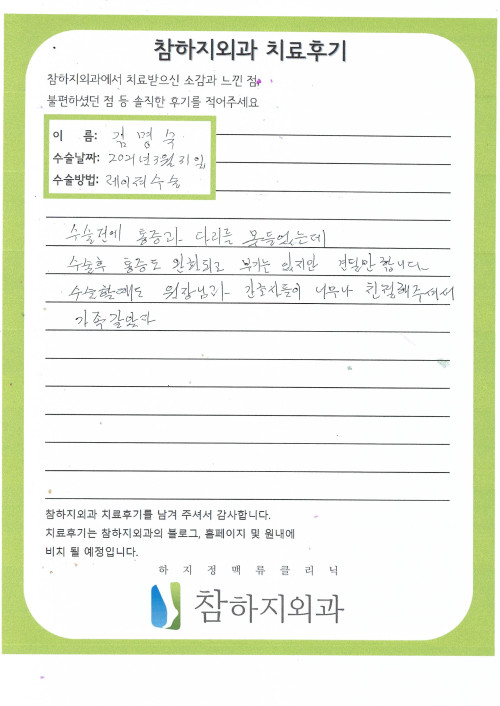 참하지외과 치료후기
참하지외과에서 치료받으신 소감과 느낀 점,
불편하셨던 점 등 솔직한 후기를 적어주세요
이 름: 김명숙
수술날짜: 2021년3월31일
수술방법: 레이져수술
수술전에 통증과 다리를 못들었는데
수술후 통증도 완화되고 부기는 있지만 견딜만 합니다.
수술할때도 원장님과 간호사들이 너무나 친절해주셔서
가족같았다
참하지외과 치료후기를 남겨 주셔서 감사합니다.
치료후기는 참하지외과의 블로그, 홈페이지 및 원내에
비치 될 예정입니다.
하지정맥류클리닉
참하지외과